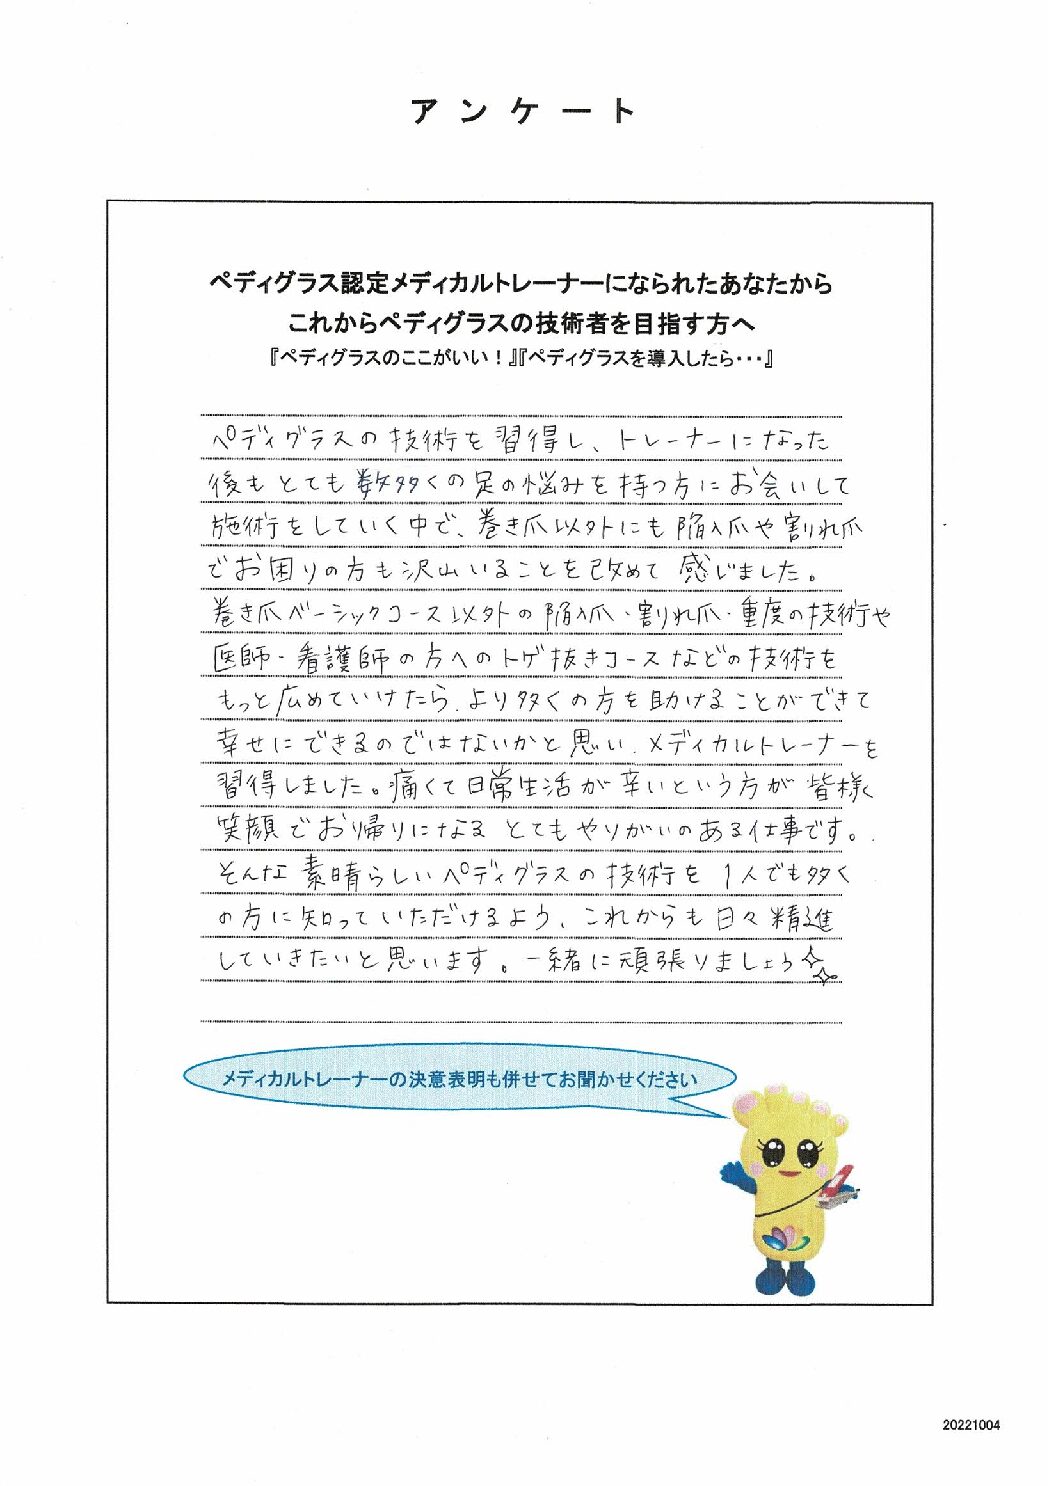 アンケート
ペディグラス認定メディカルトレーナーになられたあなたから
これからペディグラスの技術者を目指す方へ
『ペディグラスのここがいい！』『ペディグラスを導入したら・・・』
ペディグラスの技術を習得し、トレーナーになった
後もとても数多くの足の悩みを持つ方にお会いして
施術をしていく中で、巻き爪以外にも陥入爪や割れ爪
でお困りの方も沢山いることを改めて感じました。
巻き爪ベーシックコース以外の陥入爪・割れ爪・重度の技術や
医師・看護師の方へのトゲ抜きコースなどの技術を
もっと広めていけたら、より多くの方を助けることができて
幸せにできるのではないかと思い、メディカルトレーナーを
習得しました。痛くて日常生活が辛いという方が皆様
笑顔でお帰りになるとてもやりがいのある仕事です。
そんな素晴らしいペディグラスの技術を1人でも多く
の方に知っていただけるよう、これからも日々精進
していきたいと思います。一緒に頑張りましょう
メディカルトレーナーの決意表明も併せてお聞かせください
20221004